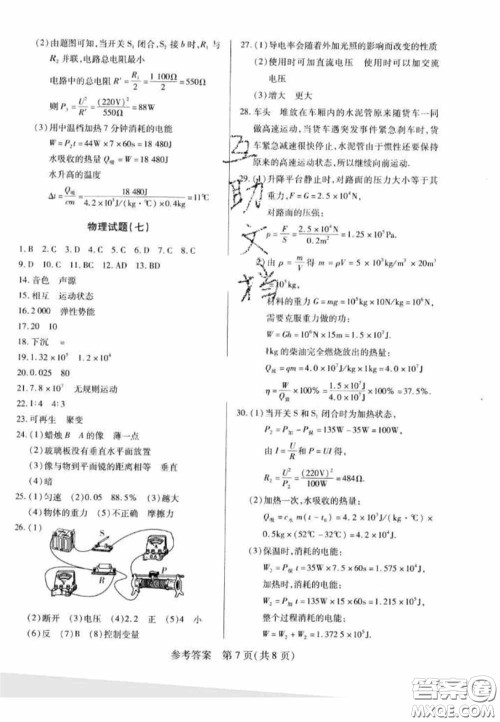 (2)由题图可知,当开关S₁闭合,S₂接b时,R₁与
R₂并联,电路总电阻最小
电路中的总电阻R'=R₁/2=1 100Ω/2=550Ω
则P₁=U²/R'=(220V)²/550Ω=88W
(3)用中温档加热7分钟消耗的电能
W=P₂t=44W×7×60s=18 480J
水吸收的热量Q吸=W=18 480J
水升高的温度
Δt=Q吸/cm=18 480J/4.2×10³J/(kg·℃)×0.4kg=11℃
物理试题(七)
1. B 2. C 3. D 4. C 5. D 6. C 7. C 8. B
9. D 10. C 11. BC 12. AD 13. BD
14. 音色 声源
15. 相互 运动状态
16. 2 000 弹性势能
17. 20 10
18. 下沉 =
19. 1.32×10³ 1.2×10⁴
20. 0.025 80
21. 7.8×10⁷ 无规则运动
22. 1:4 4:3
23. 可再生 聚变
24. (1)蜡烛B A的像 薄一点
(2)玻璃板没有垂直水平面放置
(3)像与物到平面镜的距离相等 垂直
(4)暗
25. (1)匀速 (2)0.05 88.5% (3)越大
(4)物体的重力 (5)不正确 摩擦力
26. (1)
S
R
P
(2)断开 (3)电压 (4)2.2 正 (5)4 小
(6)反 (7)B (8)控制变量
27. (1)导电率会随着外加光照的影响而改变的性质
(2)使用时可加直流电压 使用时可以加交流
电压
(3)增大 更大
28. 车头 堆放在车厢内的水泥管原来随货车一同
做高速运动,当货车遇突发事件紧急刹车时,货
车紧急减速很快停止,水泥管由于惯性还要保持
原来的高速运动状态,所以继续向前运动.
29. (1)升降平台静止时,对路面的压力大小等于其
重力,F=G=2.5×10⁴N,
对路面的压强:
p=F/S=2.5×10⁴N/0.2m²=1.25×10⁵Pa.
由ρ=m/V得m=ρV=5×10³kg/m³×20m³
=10⁵kg,
材料的重力G=mg=10⁵kg×10N/kg=10⁶N,
需要克服重力做的功:
W=Gh=10⁶N×15m=1.5×10⁷J,
1kg的柴油完全燃烧放出的热量:
Q放=qm=4.0×10⁷J/kg×1kg=4.0×10⁷J,
η=W/Q放×100%=1.5×10⁷J/4.0×10⁷J×100%=37.5%.
30. (1)当开关S和S₁闭合时为加热状态,
P₂=P加-P制=135W-35W=100W,
由I=U/R和P=UI得,
R₂=U²/P₂=(220V)²/100W=484Ω.
(2)加热一次,水吸收的热量:
Q吸=c水m(t-t₀)=4.2×10³J/(kg·℃)×
0.5kg×(52℃-32℃)=4.2×10⁴J.
(3)保温时,消耗的电能:
W₁=P制t=35W×7.5×60s=1.575×10⁴J,
加热时,消耗的电能:
W₂=P加t=135W×15×60s=1.215×10⁵J,
整个过程消耗的电能:
W=W₁+W₂=1.3725×10⁵J.
参考答案 第7页(共8页)
互
助
文
档
答案圈
MXQE.COM